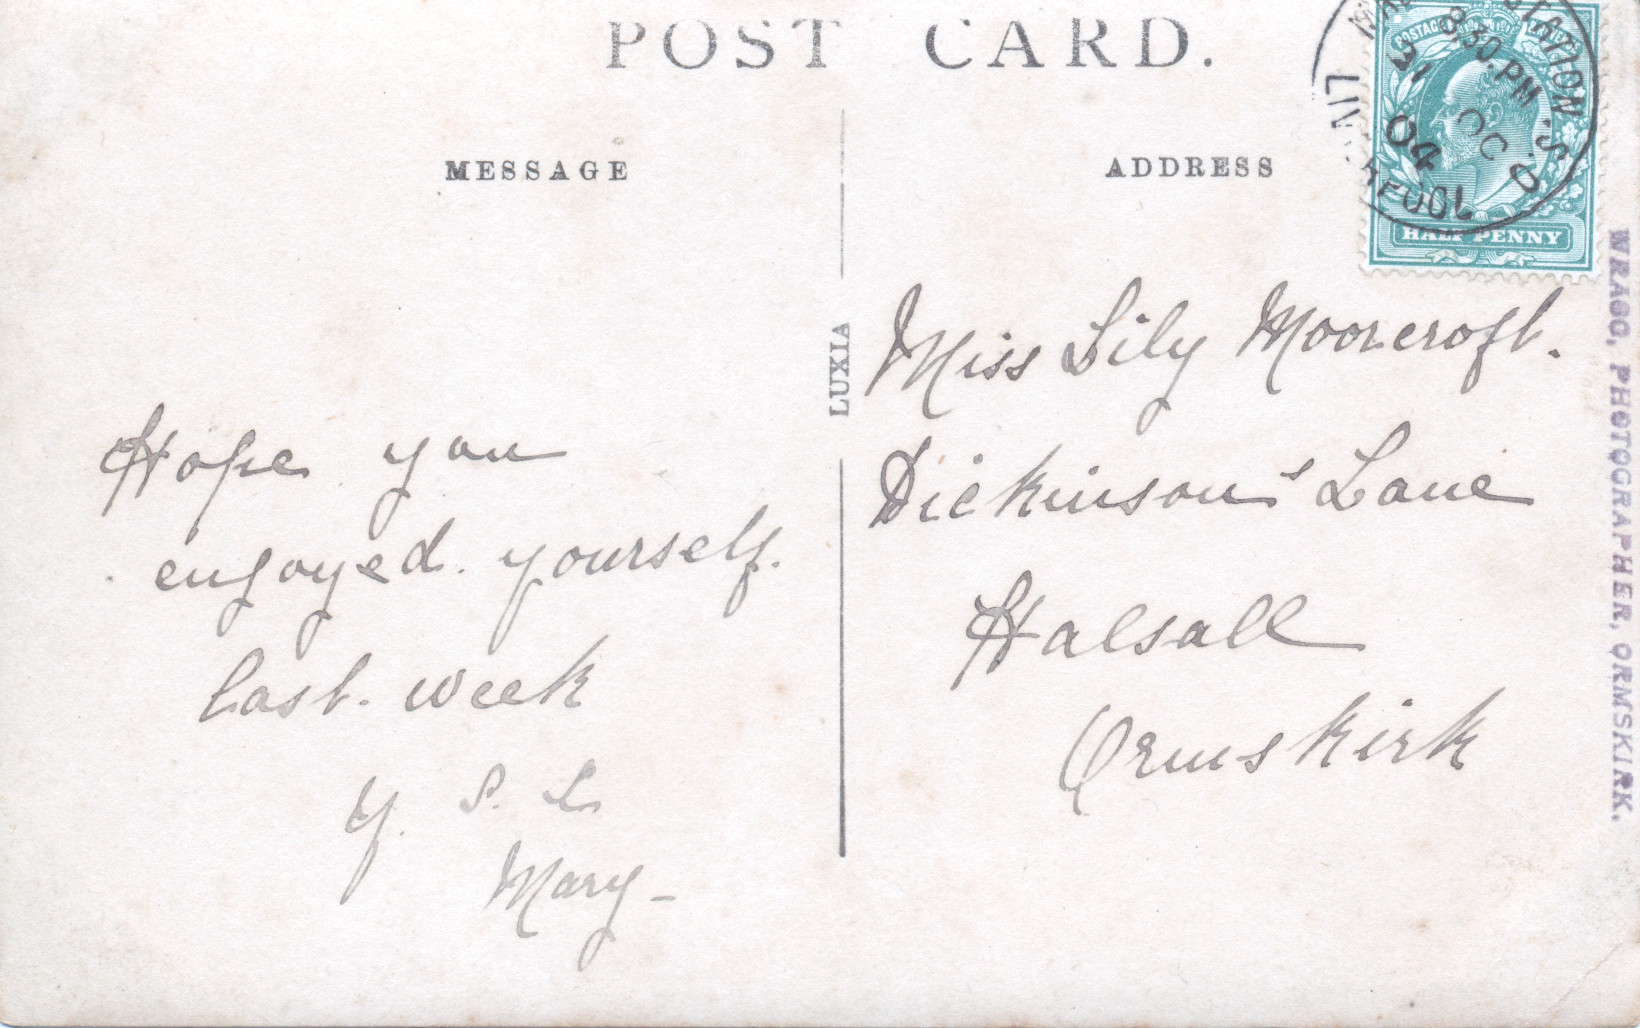 POST CARD.
MESSAGE
ADDRESS
POSTAGE
8.30.PM
OC
04
HALF PENNY
LUXIA
WRAGG, PHOTOGRAPHER, ORMSKIRK.
Hope you
engoyed. yourself.
last. week
Y. S. L
Mary -
Miss Lily Moorcroft.
Dickinson's Lane
Halsall
Ormskirk